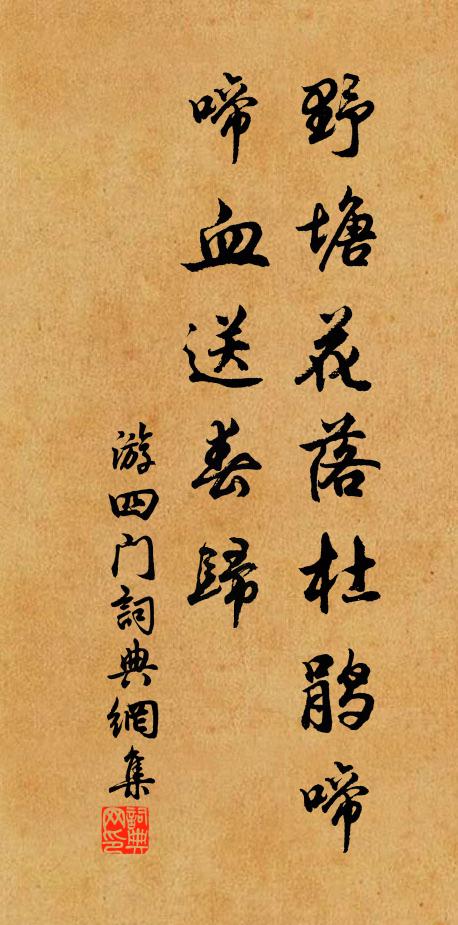 野塘花落杜鹃啼
啼血送春歸
游四门詞典網集
詞典网印